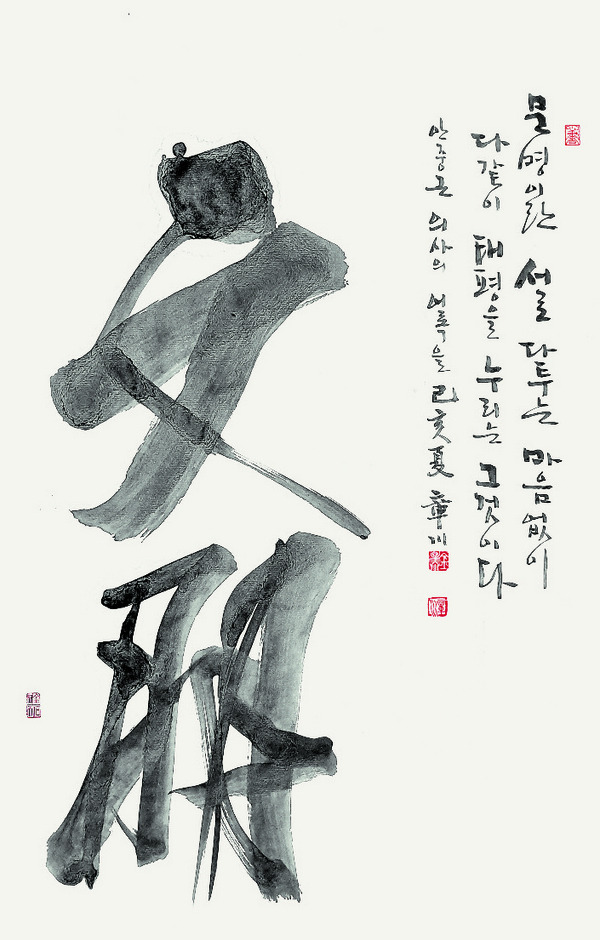 문명이란 서로 다투는 마음없이
다같이 태평을 누리는 그것이다
안중근 의사의 어록을 己亥夏
文明